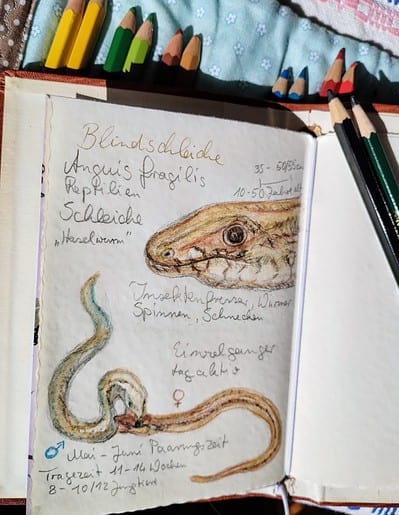 Blindschleiche
Anguis fragilis
Reptilien
Schleiche
„Haselwurm"
35 - 50/55cm
10-50 Jahre alt
Insektenfresser, Würmer
Spinnen, Schnecken
Einzelgänger
tagaktiv
♀
♂ Mai - Juni Paarungszeit
Tragezeit 11-14 Wochen
8-10/12 Jungtiere